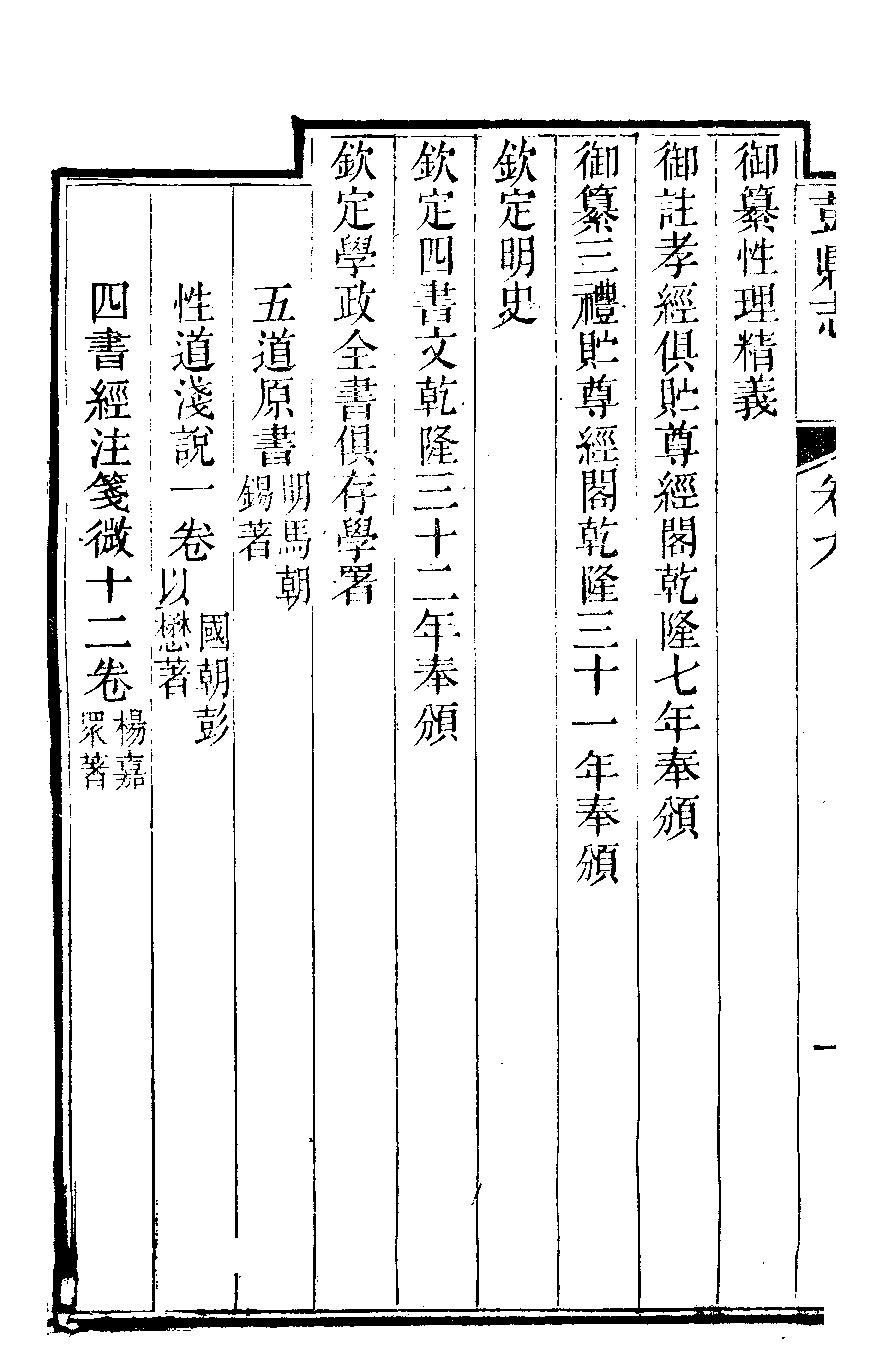 彭縣志
卷九
一
御纂性理精義
御註孝經俱貯尊經閣乾隆七年奉頒
御纂三禮貯尊經閣乾隆三十一年奉頒
欽定明史
欽定四書文乾隆三十二年奉頒
欽定學政全書俱存學署
五道原書明馬朝錫著
性道淺說一卷國朝彭以懋著
四書經注箋微十二卷楊嘉眾著